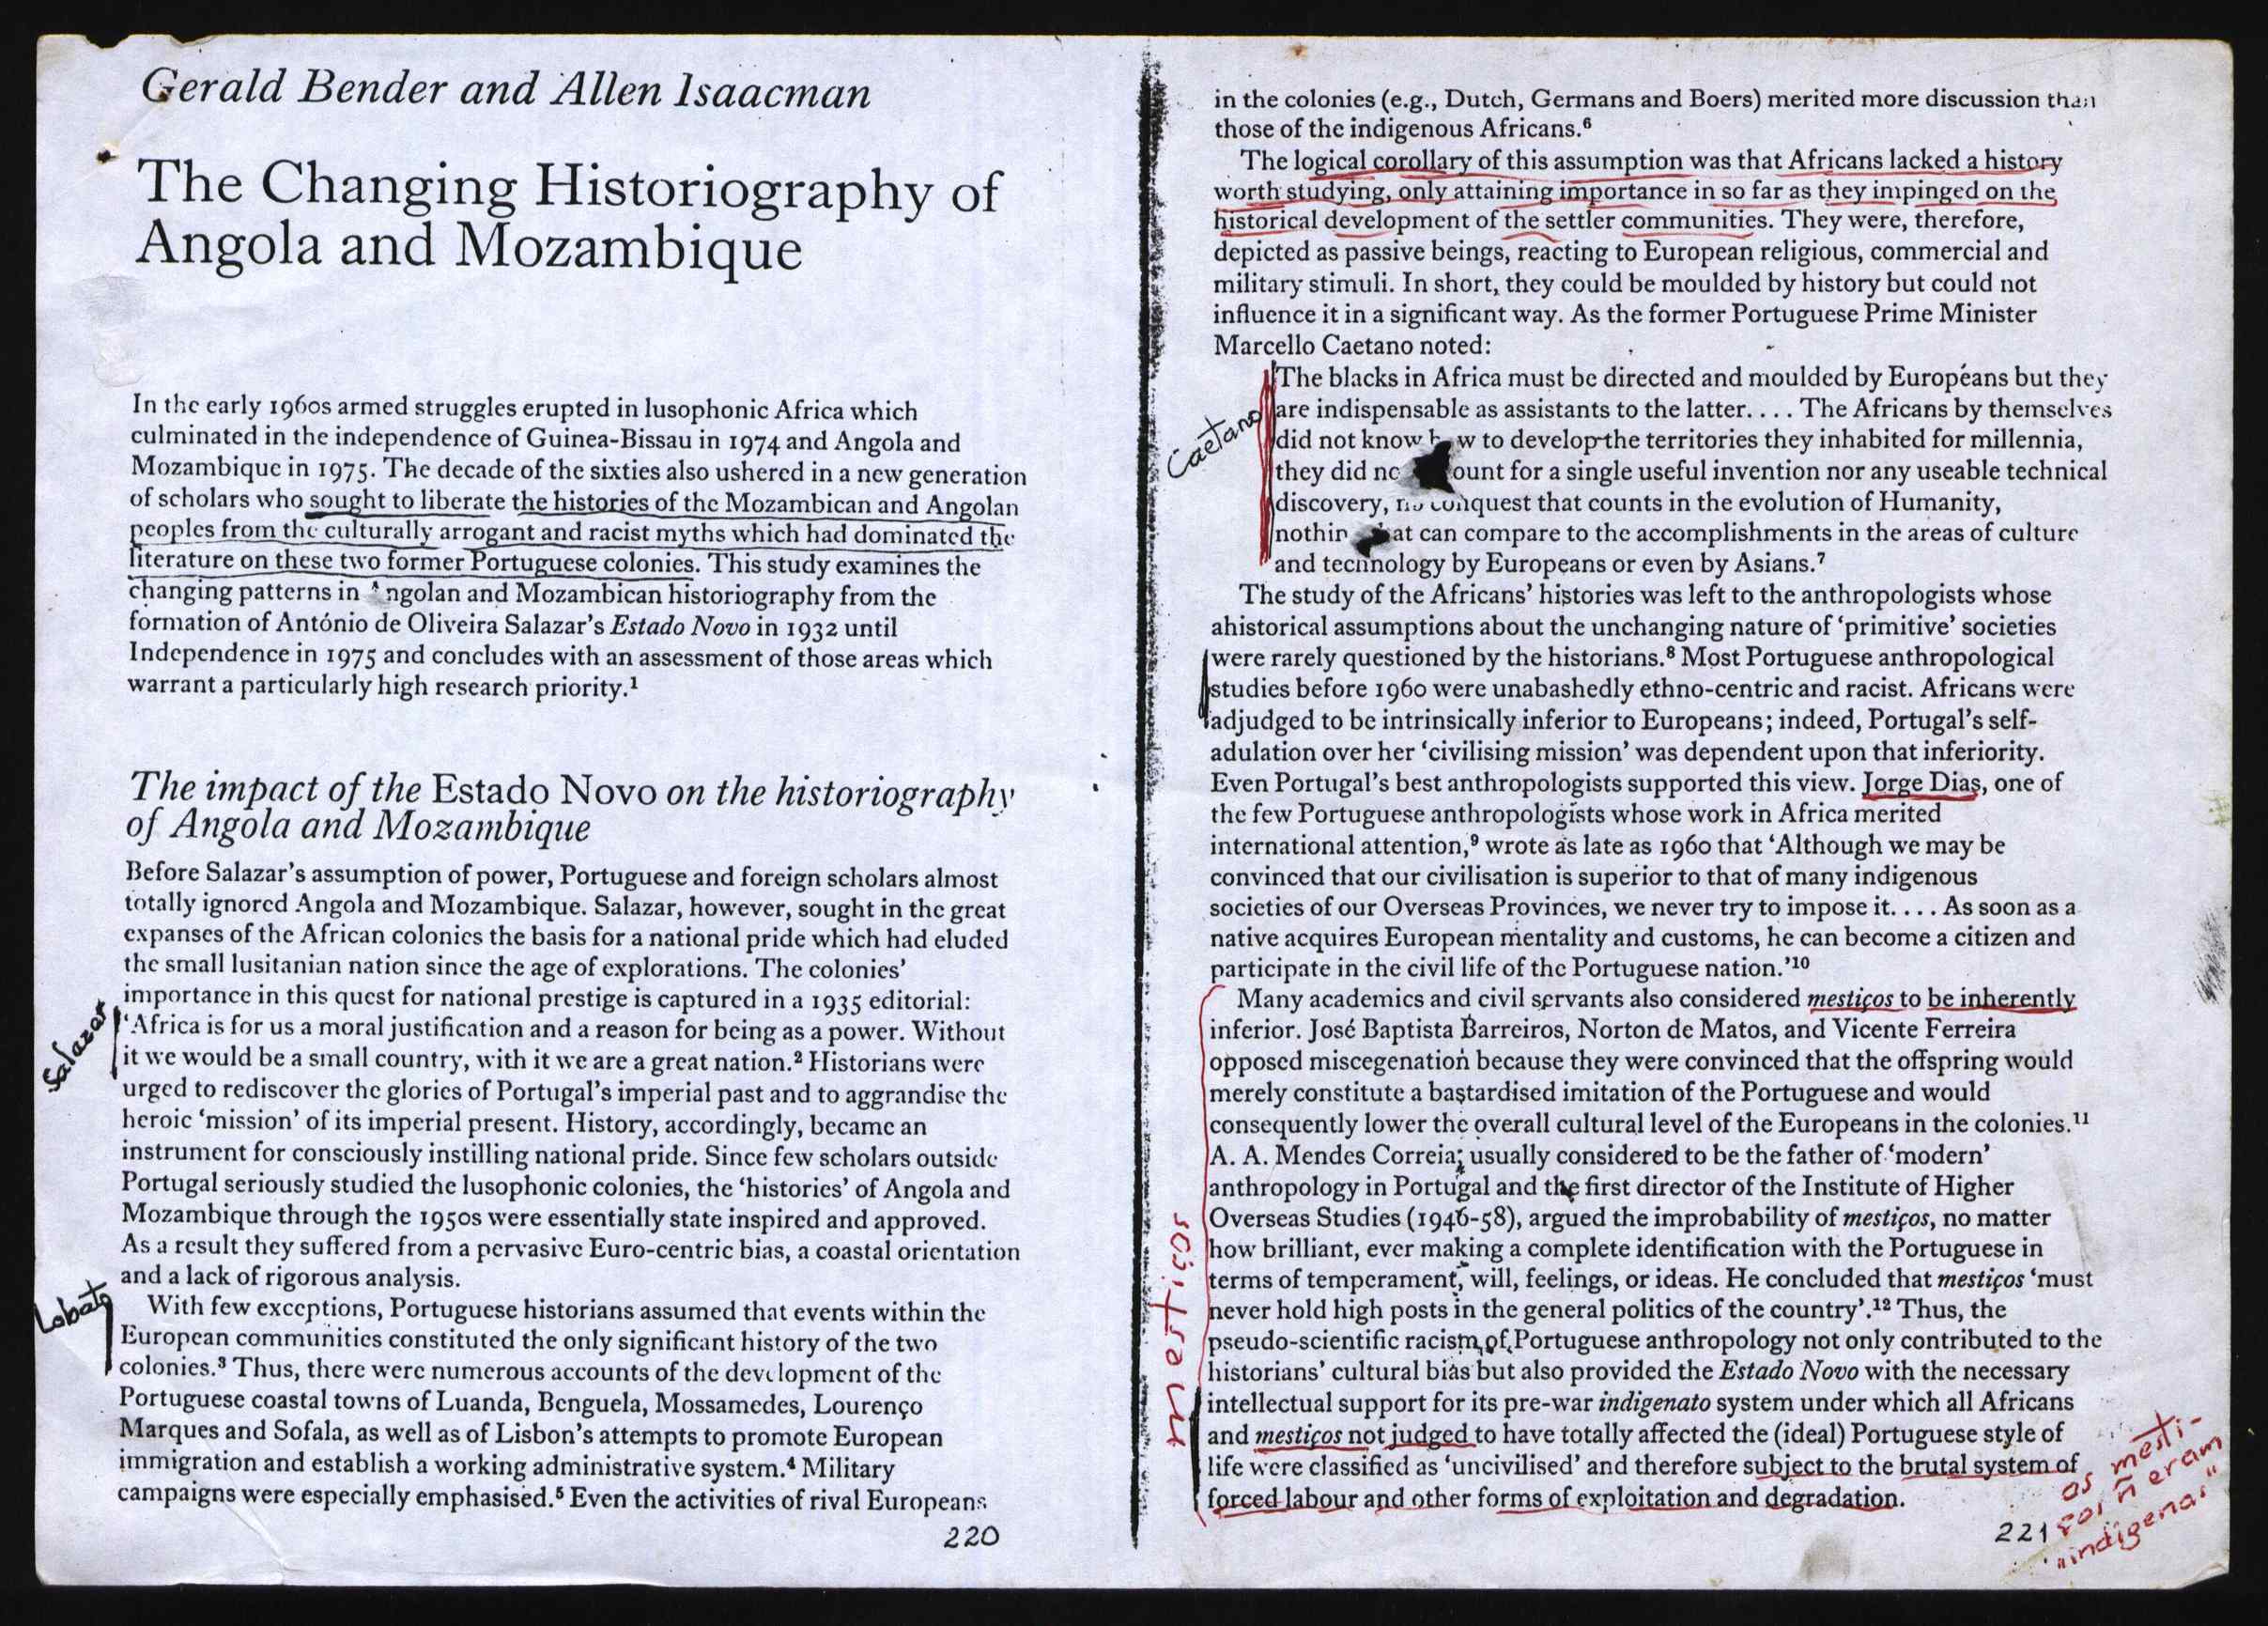 Gerald Bender and Allen Isaacman
The Changing Historiography of
Angola and Mozambique
In the early 1960s armed struggles erupted in lusophonic Africa which
culminated in the independence of Guinea-Bissau in 1974 and Angola and
Mozambique in 1975. The decade of the sixties also ushered in a new generation
of scholars who sought to liberate the histories of the Mozambican and Angolan
peoples from the culturally arrogant and racist myths which had dominated the
literature on these two former Portuguese colonies. This study examines the
changing patterns in Angolan and Mozambican historiography from the
formation of António de Oliveira Salazar's Estado Novo in 1932 until
Independence in 1975 and concludes with an assessment of those areas which
warrant a particularly high research priority.¹
The impact of the Estado Novo on the historiography
of Angola and Mozambique
Before Salazar's assumption of power, Portuguese and foreign scholars almost
totally ignored Angola and Mozambique. Salazar, however, sought in the great
expanses of the African colonies the basis for a national pride which had eluded
the small lusitanian nation since the age of explorations. The colonies'
importance in this quest for national prestige is captured in a 1935 editorial:
Salazar
'Africa is for us a moral justification and a reason for being as a power. Without
it we would be a small country, with it we are a great nation.² Historians were
urged to rediscover the glories of Portugal's imperial past and to aggrandise the
heroic 'mission' of its imperial present. History, accordingly, became an
instrument for consciously instilling national pride. Since few scholars outside
Portugal seriously studied the lusophonic colonies, the 'histories' of Angola and
Mozambique through the 1950s were essentially state inspired and approved.
As a result they suffered from a pervasive Euro-centric bias, a coastal orientation
and a lack of rigorous analysis.
Lobato
With few exceptions, Portuguese historians assumed that events within the
European communities constituted the only significant history of the two
colonies.³ Thus, there were numerous accounts of the development of the
Portuguese coastal towns of Luanda, Benguela, Mossamedes, Lourenço
Marques and Sofala, as well as of Lisbon's attempts to promote European
immigration and establish a working administrative system.⁴ Military
campaigns were especially emphasised.⁵ Even the activities of rival Europeans
220
in the colonies (e.g., Dutch, Germans and Boers) merited more discussion than
those of the indigenous Africans.⁶
The logical corollary of this assumption was that Africans lacked a history
worth studying, only attaining importance in so far as they impinged on the
historical development of the settler communities. They were, therefore,
depicted as passive beings, reacting to European religious, commercial and
military stimuli. In short, they could be moulded by history but could not
influence it in a significant way. As the former Portuguese Prime Minister
Marcello Caetano noted:
Caetano
The blacks in Africa must be directed and moulded by Europeans but they
are indispensable as assistants to the latter. . . . The Africans by themselves
did not know how to develop the territories they inhabited for millennia,
they did no ount for a single useful invention nor any useable technical
discovery, no conquest that counts in the evolution of Humanity,
nothin at can compare to the accomplishments in the areas of culture
and technology by Europeans or even by Asians.⁷
The study of the Africans' histories was left to the anthropologists whose
ahistorical assumptions about the unchanging nature of 'primitive' societies
were rarely questioned by the historians.⁸ Most Portuguese anthropological
studies before 1960 were unabashedly ethno-centric and racist. Africans were
adjudged to be intrinsically inferior to Europeans; indeed, Portugal's self-
adulation over her 'civilising mission' was dependent upon that inferiority.
Even Portugal's best anthropologists supported this view. Jorge Dias, one of
the few Portuguese anthropologists whose work in Africa merited
international attention,⁹ wrote as late as 1960 that 'Although we may be
convinced that our civilisation is superior to that of many indigenous
societies of our Overseas Provinces, we never try to impose it. . . . As soon as a
native acquires European mentality and customs, he can become a citizen and
participate in the civil life of the Portuguese nation.'¹⁰
Many academics and civil servants also considered mestiços to be inherently
inferior. José Baptista Barreiros, Norton de Matos, and Vicente Ferreira
opposed miscegenation because they were convinced that the offspring would
merely constitute a bastardised imitation of the Portuguese and would
consequently lower the overall cultural level of the Europeans in the colonies.¹¹
A. A. Mendes Correia, usually considered to be the father of 'modern'
anthropology in Portugal and the first director of the Institute of Higher
Overseas Studies (1946-58), argued the improbability of mestiços, no matter
how brilliant, ever making a complete identification with the Portuguese in
terms of temperament, will, feelings, or ideas. He concluded that mestiços 'must
never hold high posts in the general politics of the country'.¹² Thus, the
pseudo-scientific racism of Portuguese anthropology not only contributed to the
historians' cultural bias but also provided the Estado Novo with the necessary
intellectual support for its pre-war indigenato system under which all Africans
and mestiços not judged to have totally affected the (ideal) Portuguese style of
life were classified as 'uncivilised' and therefore subject to the brutal system of
forced labour and other forms of exploitation and degradation.
mestiços
221
os mesti-
ços ñ eram
"indigenas"